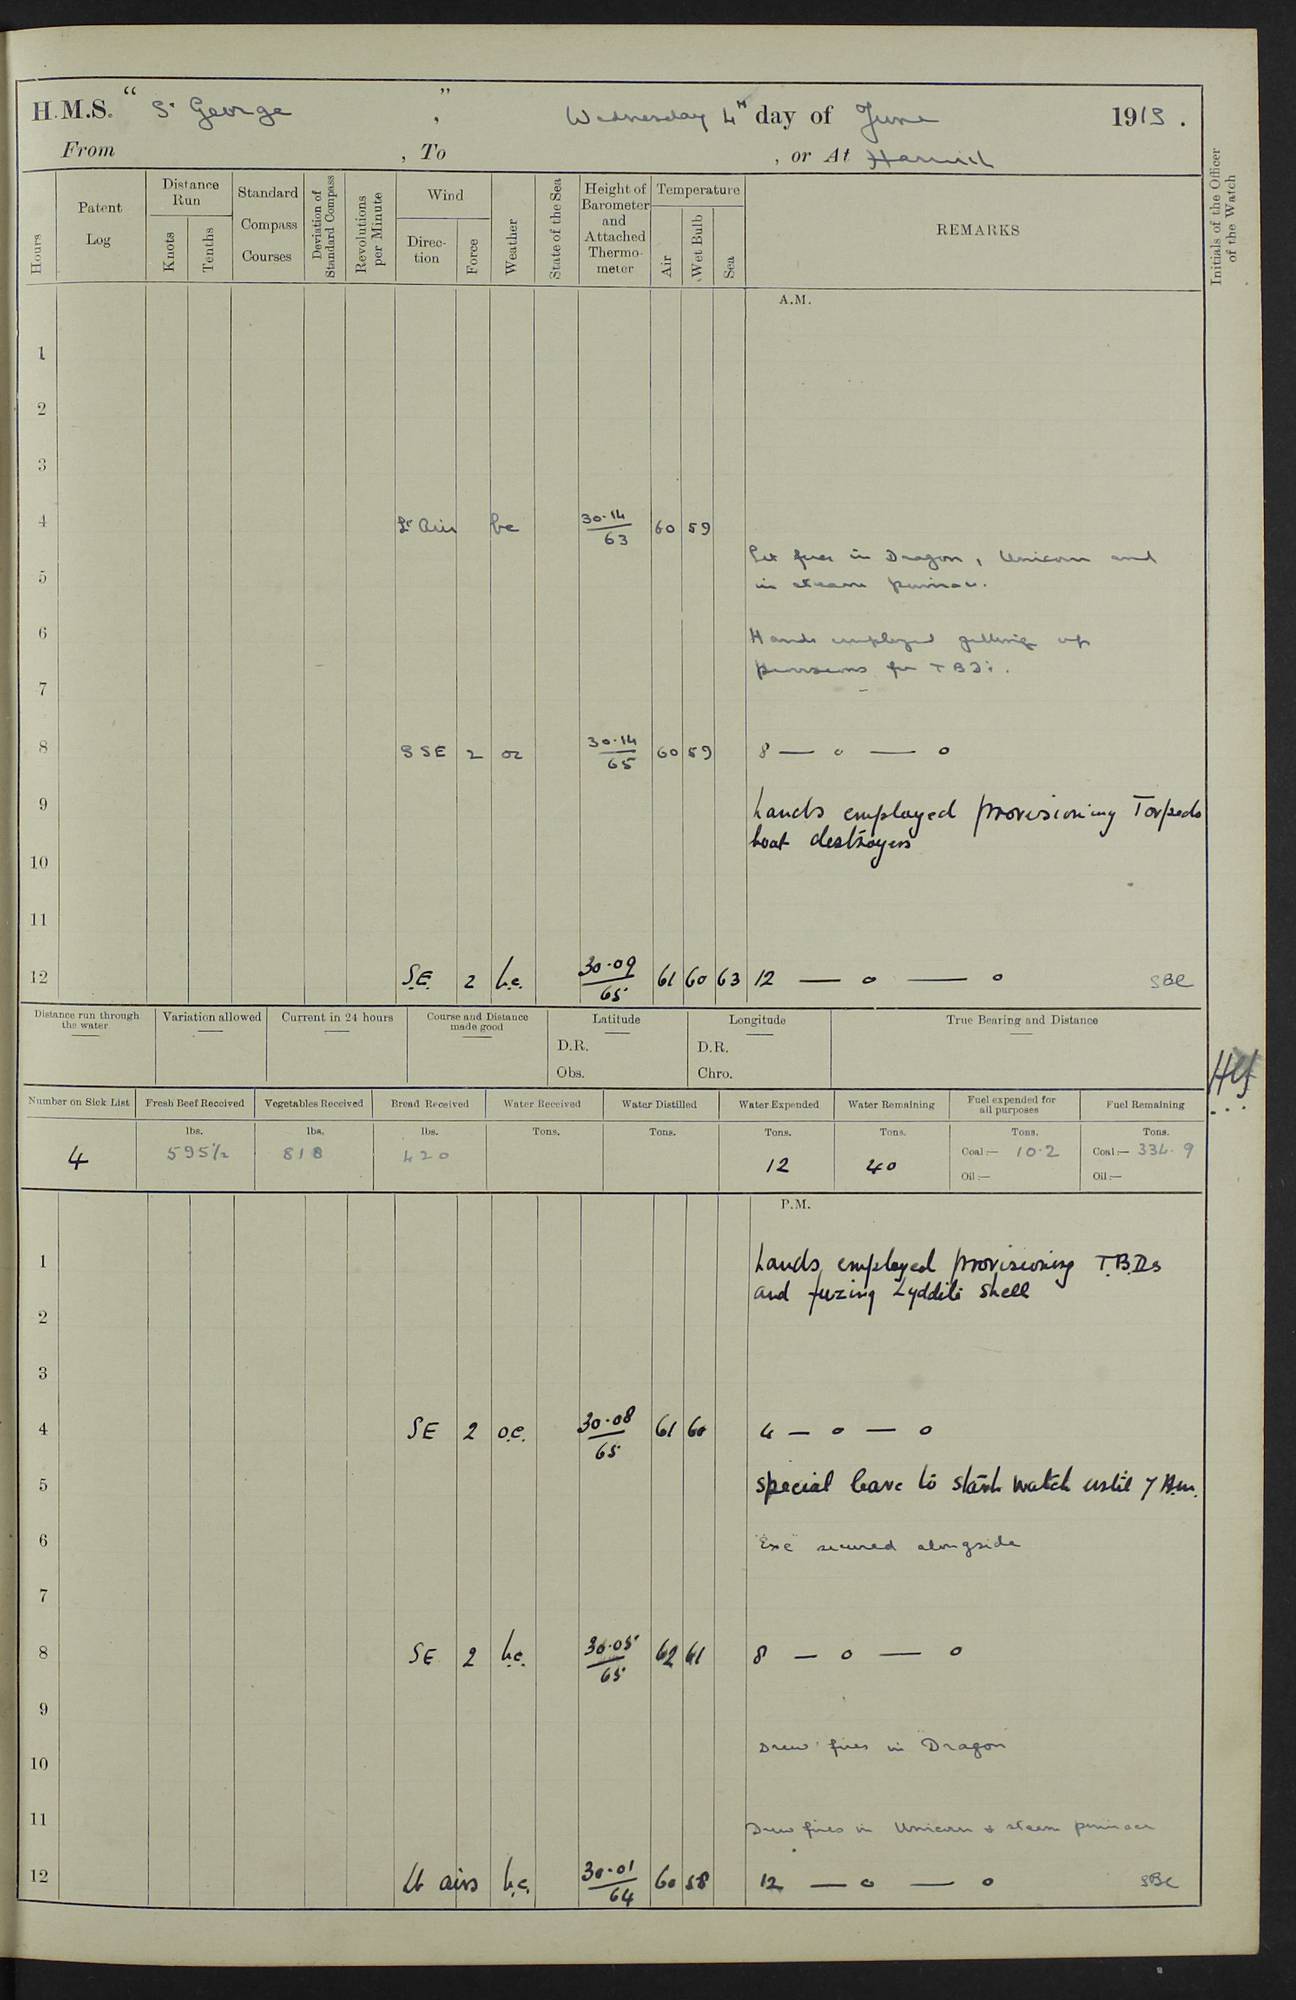 H.M.S. “ St George ” , Wednesday 4th day of June 1913 .
From , To , or At Harwich
Hours
Patent Log
Distance Run
Knots
Tenths
Standard Compass Courses
Deviation of Standard Compass
Revolutions per Minute
Wind
Direc-tion
Force
Weather
State of the Sea
Height of Barometer and Attached Thermo-meter
Temperature
Air
Wet Bulb
Sea
REMARKS
Initials of the Officer of the Watch
A.M.
1
2
3
4 Lt Airs bc 30.14/63 60 59
Lit fires in Dragon, Unicorn and
5 in steam pinnace.
6 Hands employed getting up
provisions for TBDs.
7
8 SSE 2 oc 30.14/65 60 59 8 — o — o
9 hands employed provisioning Torpedo
boat destroyers
10
11
12 S.E. 2 b.c. 30.09/65 61 60 63 12 — o — o SBC
Distance run through the water
Variation allowed
Current in 24 hours
Course and Distance made good
Latitude
D.R.
Obs.
Longitude
D.R.
Chro.
True Bearing and Distance
Number on Sick List
Fresh Beef Received
Vegetables Received
Bread Received
Water Received
Water Distilled
Water Expended
Water Remaining
Fuel expended for all purposes
Fuel Remaining
lbs. lbs. lbs. Tons. Tons. Tons. Tons. Tons. Tons.
4 595½ 818 420 12 40 Coal:— 10.2 Coal:— 334.9
Oil:— Oil:—
P.M.
1 hands employed provisioning T.B.Ds
and fuzing Lyddite shell
2
3
4 SE 2 o.c. 30.08/65 61 60 4 — o — o
5 special leave to starb watch until 7 A.m.
6 "Exe" secured alongside
7
8 SE 2 b.c. 30.05/65 62 61 8 — o — o
9
Drew fires in Dragon
10
11 Drew fires in Unicorn & steam pinnace
12 Lt airs b.c. 30.01/64 60 58 12 — o — o SBC